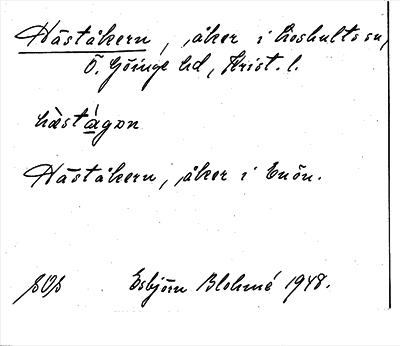 Häståkern, åker i Loshults sn,
Ö. Göinge hd, Krist. l.
hästágən
Häståkern, åker i Enön.
Esbjörn Blohmé 1948.